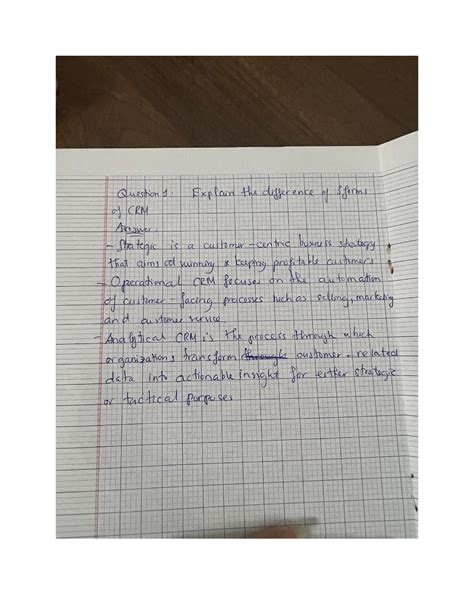 Question 1: Explain the difference of 3 forms
of CRM
Answer.
- Strategic is a customer-centric business strategy
that aims at winning & keeping profitable customers
- Operational CRM focuses on the automation
of customer-facing processes such as selling, marketing
and customer service
- Analytical CRM is the process through which
organizations transform through customer-related
data into actionable insight for either strategic
or tactical purposes